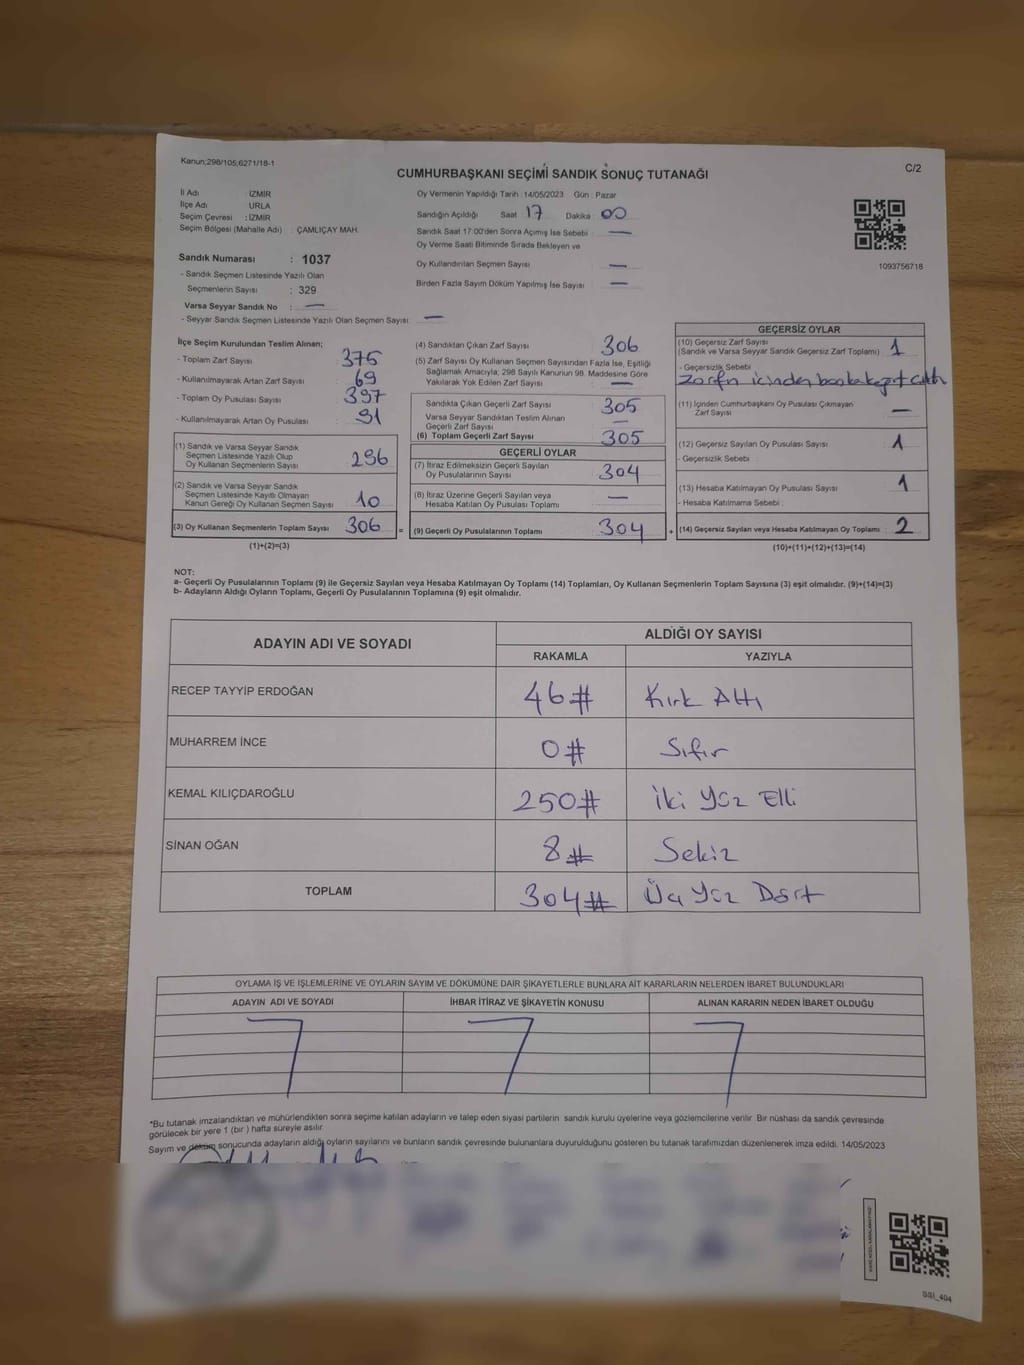 Kanun;298/105;6271/18-1
C/2
CUMHURBAŞKANI SEÇİMİ SANDIK SONUÇ TUTANAĞI
İl Adı : İZMİR
İlçe Adı : URLA
Seçim Çevresi : İZMİR
Seçim Bölgesi (Mahalle Adı) : ÇAMLIÇAY MAH.
Sandık Numarası : 1037
- Sandık Seçmen Listesinde Yazılı Olan
Seçmenlerin Sayısı : 329
Varsa Seyyar Sandık No : —
- Seyyar Sandık Seçmen Listesinde Yazılı Olan Seçmen Sayısı: —
Oy Vermenin Yapıldığı Tarih : 14/05/2023 Gün : Pazar
Sandığın Açıldığı Saat 17 Dakika 00
Sandık Saat 17:00'den Sonra Açımış İse Sebebi : —
Oy Verme Saati Bitiminde Sırada Bekleyen ve
Oy Kullandırılan Seçmen Sayısı : —
Birden Fazla Sayım Döküm Yapılmış İse Sayısı : —
1093756718
İlçe Seçim Kurulundan Teslim Alınan;
- Toplam Zarf Sayısı : 375
- Kullanılmayarak Artan Zarf Sayısı : 69
- Toplam Oy Pusulası Sayısı : 397
- Kullanılmayarak Artan Oy Pusulası : 91
(1) Sandık ve Varsa Seyyar Sandık
Seçmen Listesinde Yazılı Olup
Oy Kullanan Seçmenlerin Sayısı : 296
(2) Sandık ve Varsa Seyyar Sandık
Seçmen Listesinde Kayıtlı Olmayan
Kanun Gereği Oy Kullanan Seçmen Sayısı : 10
(3) Oy Kullanan Seçmenlerin Toplam Sayısı : 306
(1)+(2)=(3)
(4) Sandıktan Çıkan Zarf Sayısı : 306
(5) Zarf Sayısı Oy Kullanan Seçmen Sayısından Fazla İse, Eşitliği
Sağlamak Amacıyla; 298 Sayılı Kanunun 98. Maddesine Göre
Yakılarak Yok Edilen Zarf Sayısı : —
Sandıkta Çıkan Geçerli Zarf Sayısı : 305
Varsa Seyyar Sandıktan Teslim Alınan
Geçerli Zarf Sayısı : —
(6) Toplam Geçerli Zarf Sayısı : 305
GEÇERLİ OYLAR
(7) İtiraz Edilmeksizin Geçerli Sayılan
Oy Pusulalarının Sayısı : 304
(8) İtiraz Üzerine Geçerli Sayılan veya
Hesaba Katılan Oy Pusulası Toplamı : —
= (9) Geçerli Oy Pusulalarının Toplamı : 304
GEÇERSİZ OYLAR
(10) Geçersiz Zarf Sayısı
(Sandık ve Varsa Seyyar Sandık Geçersiz Zarf Toplamı) : 1
- Geçersizlik Sebebi
Zarfın içinden başka kağıt çıktı
(11) İçinden Cumhurbaşkanı Oy Pusulası Çıkmayan
Zarf Sayısı : —
(12) Geçersiz Sayılan Oy Pusulası Sayısı : 1
- Geçersizlik Sebebi :
(13) Hesaba Katılmayan Oy Pusulası Sayısı : 1
- Hesaba Katılmama Sebebi :
+ (14) Geçersiz Sayılan veya Hesaba Katılmayan Oy Toplamı : 2
(10)+(11)+(12)+(13)=(14)
NOT:
a- Geçerli Oy Pusulalarının Toplamı (9) ile Geçersiz Sayılan veya Hesaba Katılmayan Oy Toplamı (14) Toplamları, Oy Kullanan Seçmenlerin Toplam Sayısına (3) eşit olmalıdır. (9)+(14)=(3)
b- Adayların Aldığı Oyların Toplamı, Geçerli Oy Pusulalarının Toplamına (9) eşit olmalıdır.
ADAYIN ADI VE SOYADI
ALDIĞI OY SAYISI
RAKAMLA YAZIYLA
RECEP TAYYİP ERDOĞAN 46# Kırk Altı
MUHARREM İNCE 0# Sıfır
KEMAL KILIÇDAROĞLU 250# İki Yüz Elli
SİNAN OĞAN 8# Sekiz
TOPLAM 304# Üç Yüz Dört
OYLAMA İŞ VE İŞLEMLERİNE VE OYLARIN SAYIM VE DÖKÜMÜNE DAİR ŞİKAYETLERLE BUNLARA AİT KARARLARIN NELERDEN İBARET BULUNDUKLARI
ADAYIN ADI VE SOYADI İHBAR İTİRAZ VE ŞİKAYETİN KONUSU ALINAN KARARIN NEDEN İBARET OLDUĞU
*Bu tutanak imzalandıktan ve mühürlendikten sonra seçime katılan adayların ve talep eden siyasi partilerin sandık kurulu üyelerine veya gözlemcilerine verilir. Bir nüshası da sandık çevresinde
görülecek bir yere 1 (bir ) hafta süreyle asılır.
Sayım ve döküm sonucunda adayların aldığı oyların sayılarını ve bunların sandık çevresinde bulunanlara duyurulduğunu gösteren bu tutanak tarafımızdan düzenlenerek imza edildi. 14/05/2023